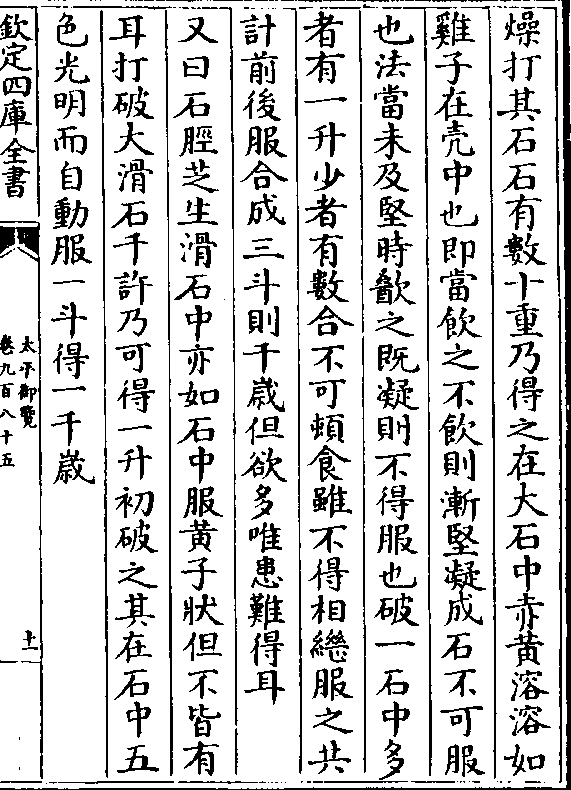 燥打其石石有數十重乃得之在大石中赤黄溶溶如
雞子在壳中也即當飲之不飲則漸堅凝成石不可服
也法當未及堅時飲之既凝則不得服也破一石中多
者有一升少者有數合不可頓食雖不得相繼服之共
計前後服合成三斗則千歳但欲多唯患難得耳
又曰石脛芝生滑石中亦如石中服黄子狀但不皆有
耳打破大滑石千許乃可得一升初破之其在石中五
色光明而自動服一斗得一千歳
欽定四庫全書
太平御覽
卷九百八十五
十一